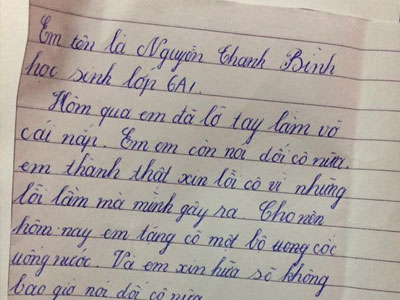 Em tên là Nguyễn Thanh Bình
học sinh lớp 6A1.
Hôm qua em đã lỡ tay làm vỡ
cái nắp. Em em còn nói dối cô nữa.
em thành thật xin lỗi cô vì những
lỗi lầm mà mình gây ra. Cho nên
hôm nay em tặng cô một bộ cốc
uống nước. Và em xin hứa sẽ không
bao giờ nói dối cô nữa